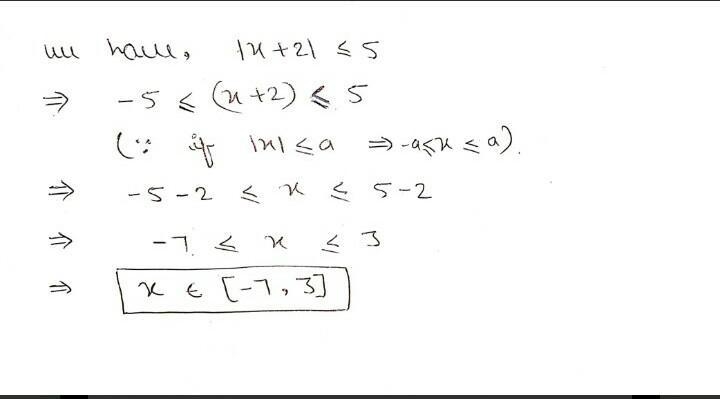 we have, |x+2| ≤ 5
⇒ -5 ≤ (x+2) ≤ 5
(∵ if |x| ≤ a ⇒ -a ≤ x ≤ a).
⇒ -5-2 ≤ x ≤ 5-2
⇒ -7 ≤ x ≤ 3
⇒ x ∈ [-7, 3]